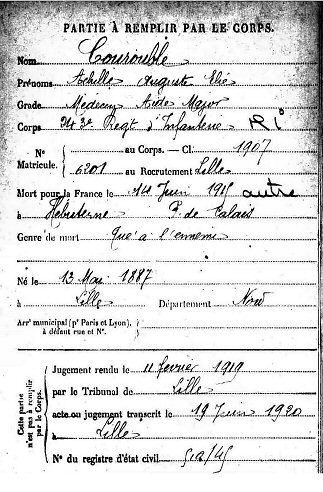 PARTIE À REMPLIR PAR LE CORPS.
Nom Courouble
Prénoms Achille Auguste Elie
Grade Médecin Aide Major
Corps 243e Regt d'Infanterie
N° Matricule. au Corps. — Cl. 1907
6201 au Recrutement Lille
Mort pour la France le 14 Juin 1915 autre
à Hébuterne P. de Calais
Genre de mort tué à l'ennemi
Né le 13 Mai 1887
à Lille Département Nord
Arrt municipal (pr Paris et Lyon),
à défaut rue et N°.
Cette partie n'est pas à remplir par le Corps.
Jugement rendu le 11 février 1919
par le Tribunal de Lille
acte ou jugement transcrit le 19 Juin 1920
à Lille
N° du registre d'état civil